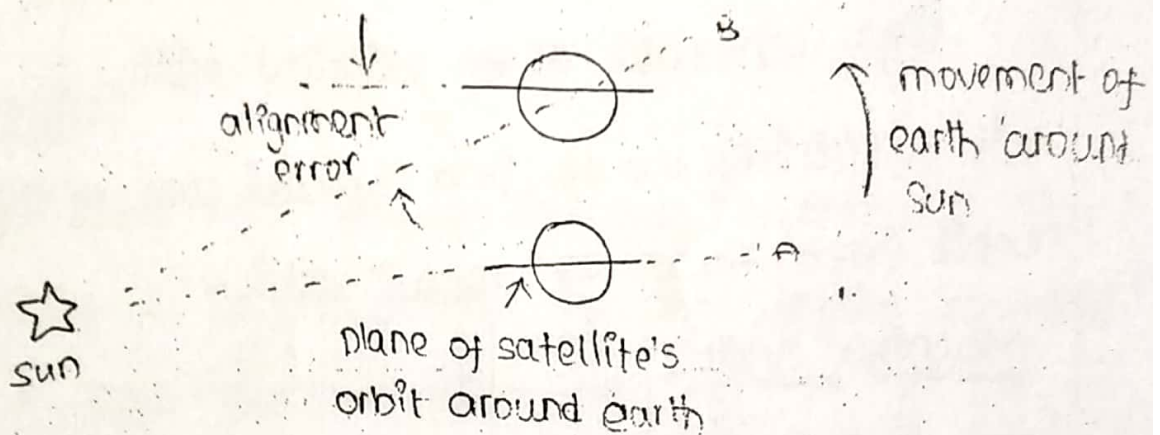 B
alignment
error
movement of
earth around
sun
A
sun
plane of satellite's
orbit around earth